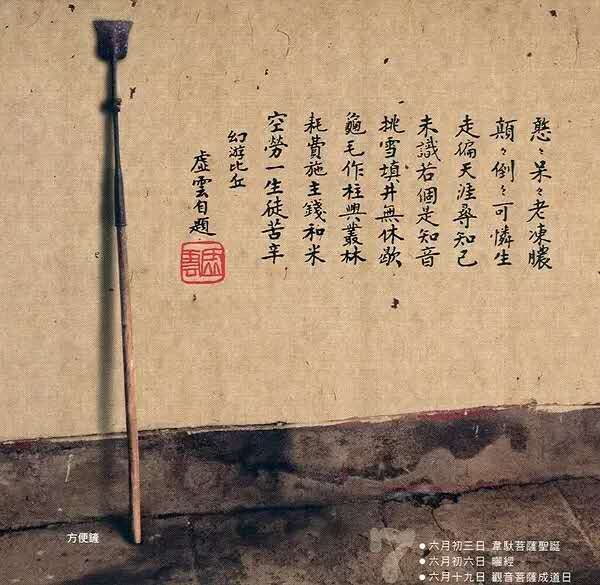 憨々呆々老凍膿
顛々倒々可憐生
走徧天涯尋知己
未識若個是知音
挑雪填井無休歇
龜毛作柱興叢林
耗費施主錢和米
空勞一生徒苦辛
幻游比丘
虛雲自題
虛雲
方便鏟
7
六月初三日 韋馱菩薩聖誕
六月初六日 曬經
六月十九日 觀音菩薩成道日